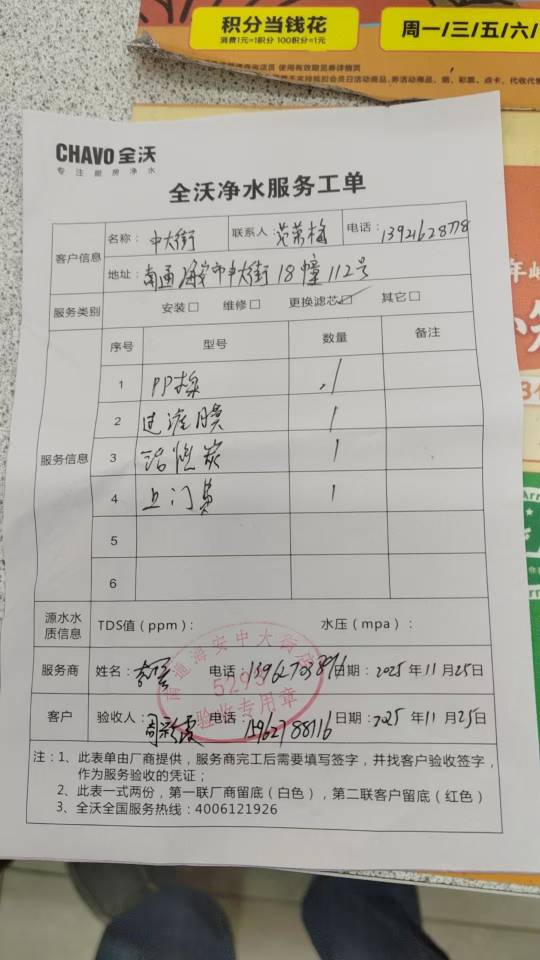 积分当钱花
消费1元=1积分 100积分=1元
周一/三/五/六/
CHAVO 全沃
专注厨房净水
全沃净水服务工单
客户信息 名称：中大街 联系人：范荣梅 电话：13921628778
地址：南通海安市中大街18幢112号
服务类别 安装□ 维修□ 更换滤芯☑ 其它□
服务信息 序号 型号 数量 备注
1 PP棉 1
2 过滤膜 1
3 活性炭 1
4 上门费 1
5
6
源水水质信息 TDS值（ppm）： 水压（mpa）：
南通海安中大街店
5295
验收专用章
服务商 姓名： 电话：13962703896 日期：2025年11月25日
客户 验收人：周彩霞 电话：15962788116 日期：2025年11月25日
注：1、此表单由厂商提供，服务商完工后需要填写签字，并找客户验收签字，
作为服务验收的凭证；
2、此表一式两份，第一联厂商留底（白色），第二联客户留底（红色）
3、全沃全国服务热线：4006121926